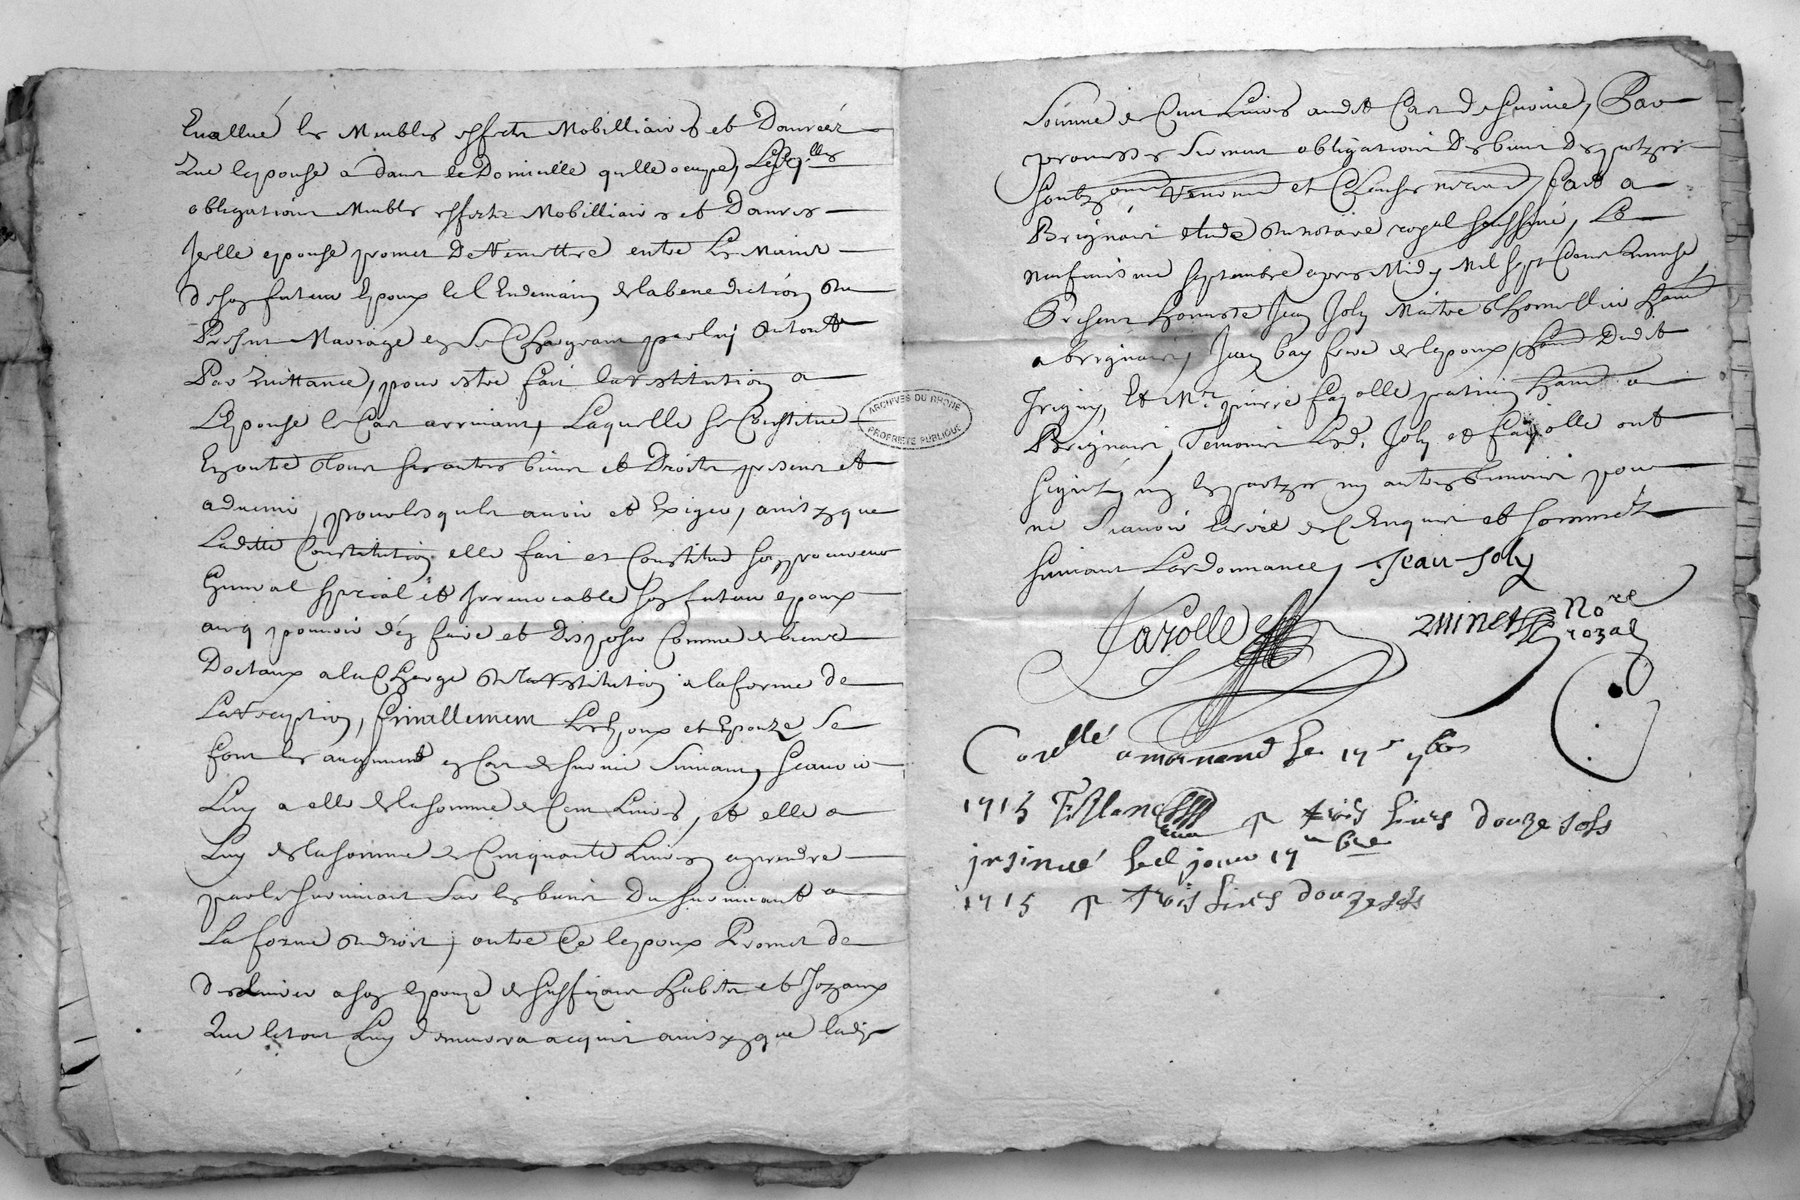 Evallué les Meubles effects Mobilliaires et Danrées
Que lepouse a dans le Domicille qu'elle occupe, Lesq.lles
obligations Meubles effects Mobilliaires et Danres
Icelle epouse promet De Remettre entre Les Mains
de son futeur Epoux le lendemain de la benediction du
Present Mariage en se Chargeant par luy du tout
Par Quittance, pour estre fait la restitution a
Lepouse le Cas arrivant, Laquelle se Constitue
En outre tous ses autres biens et Droits presens et
advenir, pour lesquels avoir et Exiger, ainsy que
Laditte Constitution elle fait et Constitue son procureur
General special et Irrevocable son futeur epoux
avec pouvoir d'en faire et Disposer Comme de biens
Doctaux a la Charge de la restitution a la forme de
La reception, finallement Les Epoux et Epouze se
font les augment en Cas de survie suivant, scavoir
Luy a elle de la somme de Cent Livres, et elle a
Luy de la somme de Cinquante Livres a prendre
par le survivant sur les biens Du survivant a
La forme du droit, outre Ce lepoux Promet de
delivrer a son epouze de suffizans habits et Joyaux
Que le tout Luy demeurera acquis ainsy que ladte
Somme de Cent Livres audit Cas de survie, Par
promesses serment obligations Des biens Des partyes
soubz renom et Clauses Fait a
Brignais etude du notaire royal soussigné, Le
neufviesme septembre apres Midy Mil sept Cent quinze
Present honneste Jean Joly Maitre habt
a brignais, Jean bay frere de lepoux, habt Dudit
Irigny, Et Mr. pierre fayolle praticien habt a
Brignais, Temoins Lesd. Joly et fayolle ont
signé, non les partyes ny autres temoins pour
ne scavoir Ecrire de Enquis et sommés
suivant Lordonnance, Jean Joly
Fayolle Quinet Nore
royal
Corellé a mornand le 17e 7bre
1715 F. Blanc R trois livres douze sols
insinué led jour 17e 7bre
1715 R trois livres douze sols
ARCHIVES DU RHONE
PROPRIETE PUBLIQUE